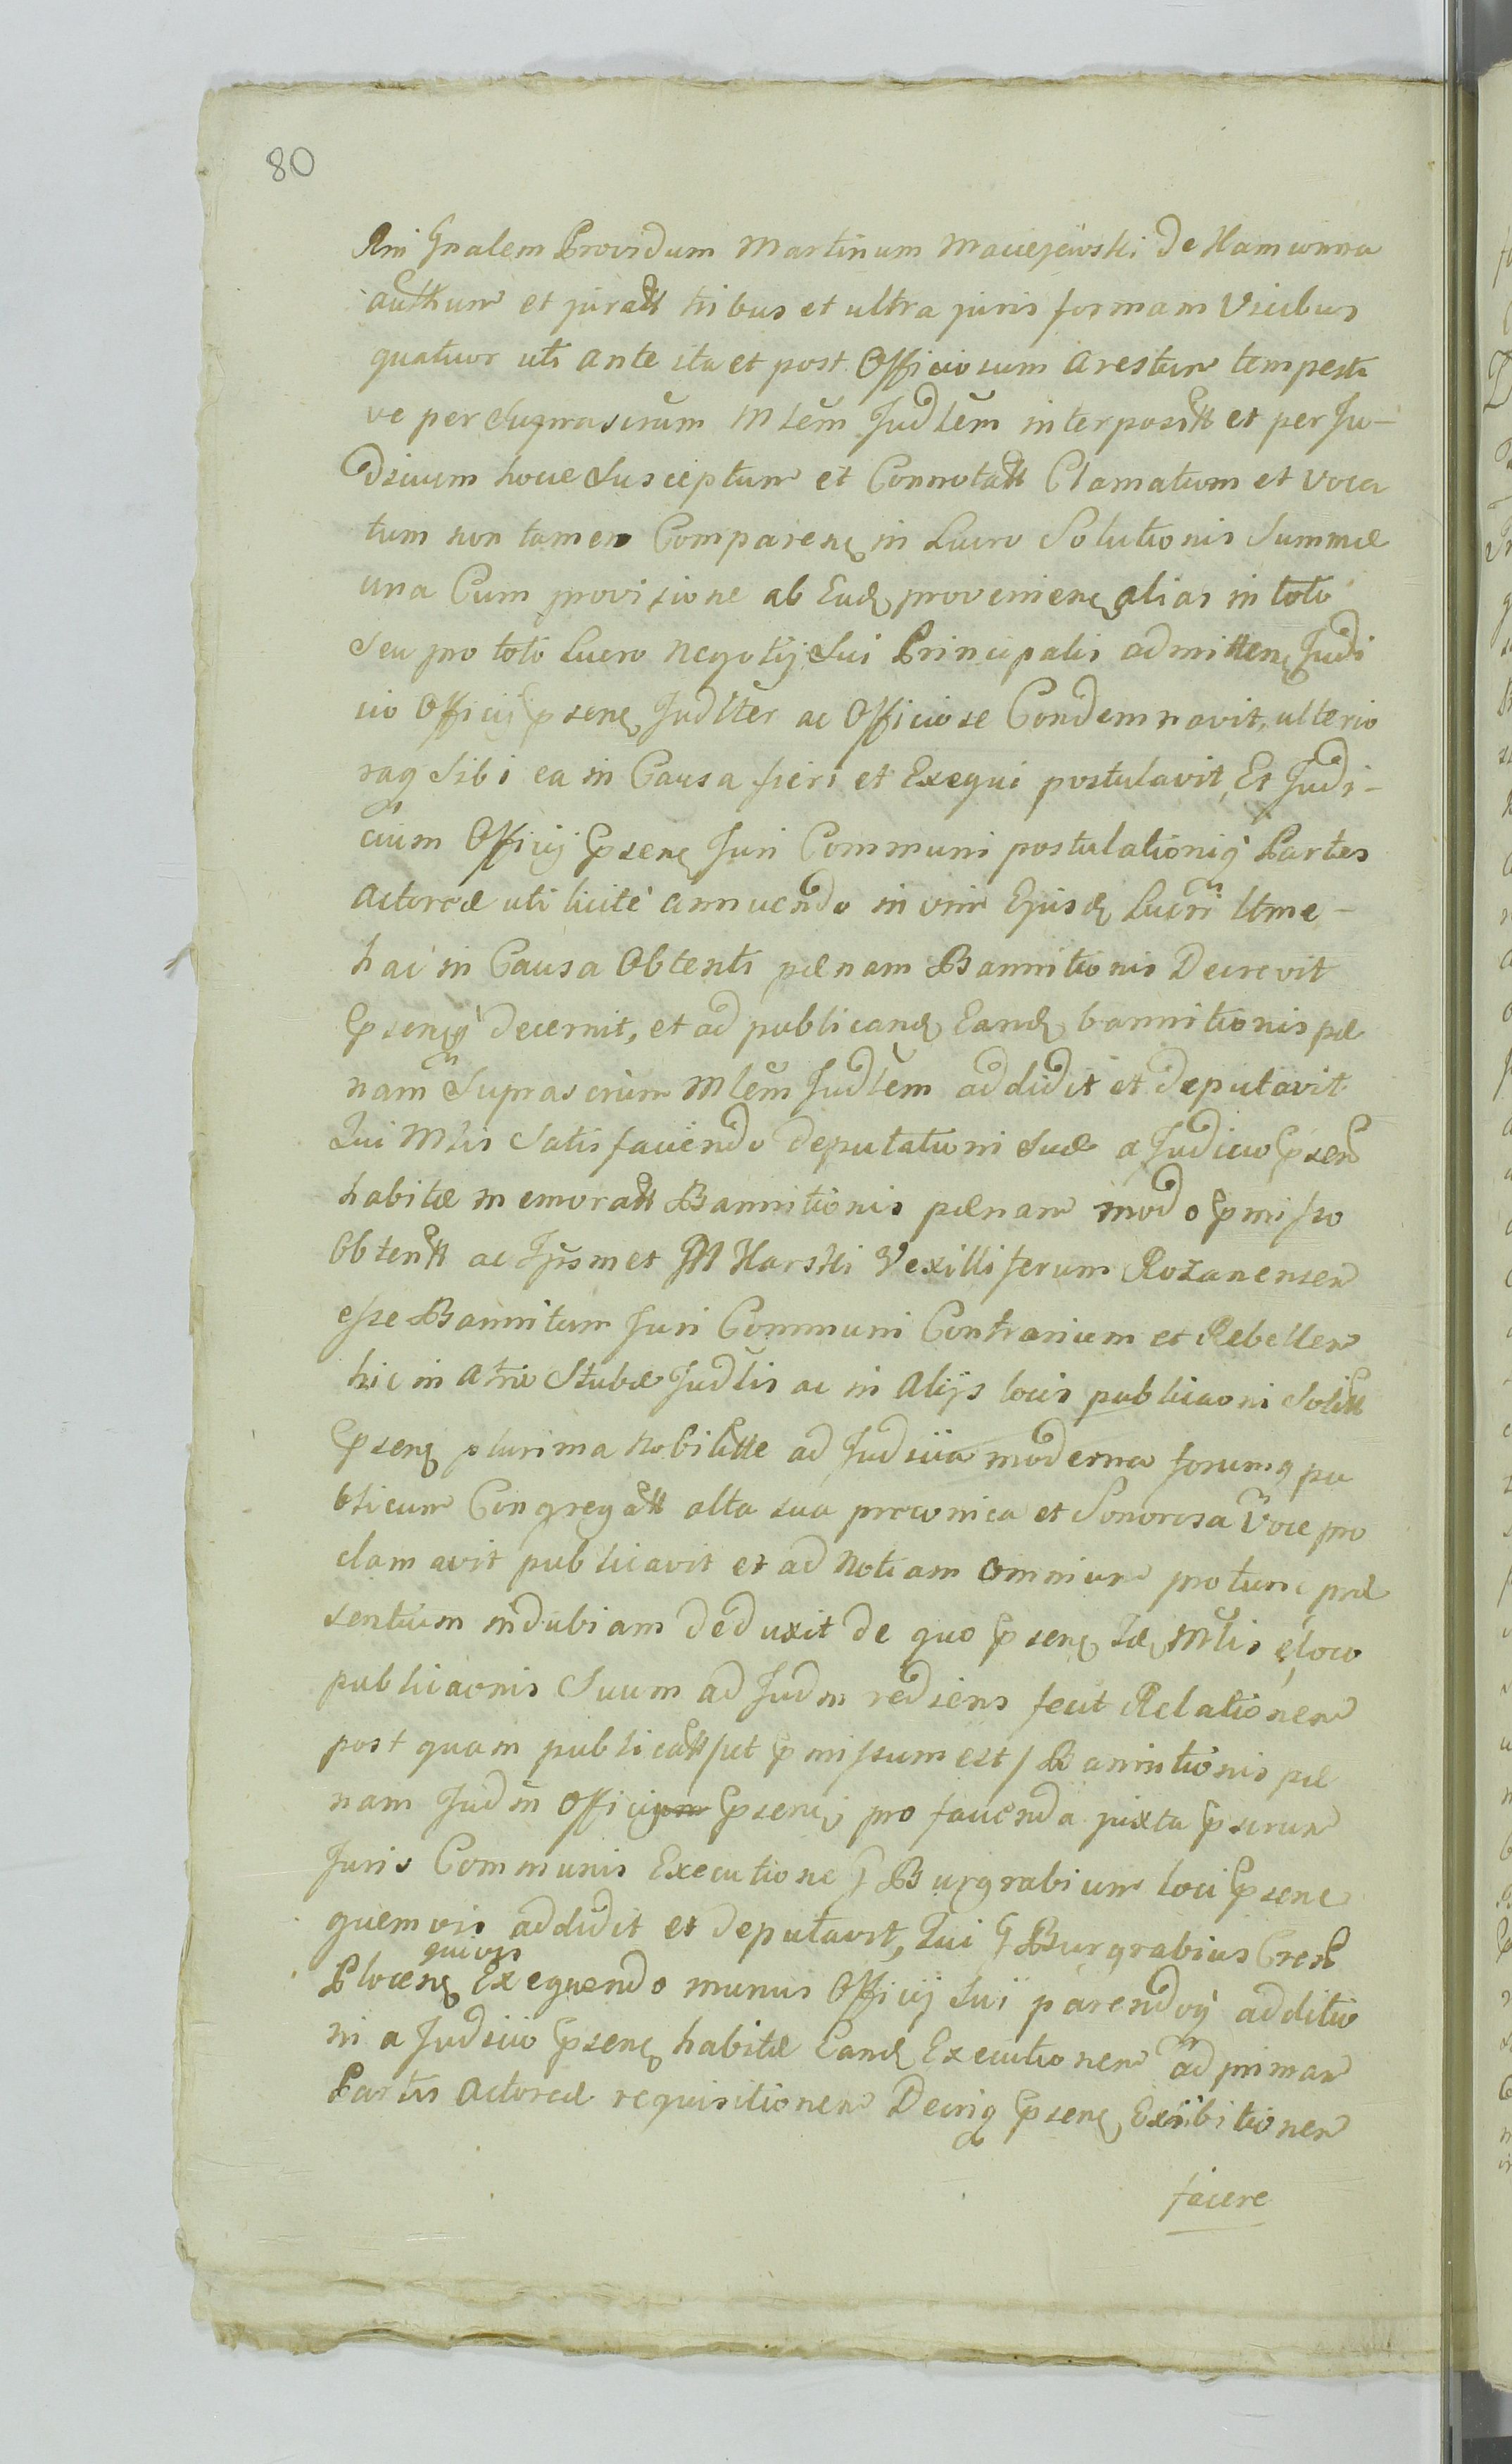 80
Rni Gnalem Providum Martinum Maciejewski de Hamernia
authum et juratt tribus et ultra juris formam Vicibus
quatuor uti ante ita et post Officiosum arestum tempesti
ve per Suprascrum Mlem Judlem interposit et per Ju-
dicium hocce Susceptum et Connotatt Clamatum et voca
tum non tamen Comparenq in Lucro Solutionis Summæ
una Cum provisione ab Eadq provenienq alias in toto
Seu pro toto Lucro Negotij Sui Principalis admittenq Judi
cio Officij psenq Judlter ac Officiose Condemnavit, ulterio
raq Sibi ea in Causa fieri et Exequi postulavit, Et Judi-
cium Officij psenq Juri Communi postulationiq Partes
Actoreæ uti licite annuendo in vim Ejusdq Lucri ltme-
hac in Causa Obtenti pænam Bannitionis Decrevit
psenqq decernit, et ad publicandq Eandq bannitionis pæ
nam Suprascrum Mlem Judlem addidit et deputavit
Qui Mlis Satisfaciendo deputationi Suæ a Judicio psen
habitæ memoratt Bannitionis pænam modo pmisso
Obtentt ac Ipsmet M Karski Vexilliferum Rozanensem
esse Bannitum Juri Communi Contrarium et Rebellem
hic in Atrio Stubæ Judlis ac in Alijs locis publicaoni Solitt
psenq plurima Nobilitte ad Judicia moderna forumq pu
blicum Congregatt alta sua præconica et Sonorosa Voce pro
clamavit publicavit et ad Notiam Omnium pro tunc præ
sentium indubiam deduxit de quo psenq Mlis e loco
publicaonis Suum ad Judm rediens fecit Relationem
post quam publicatt /ut pmissum est/ Bannitionis pæ
nam Judm Officij psenq pro facienda juxta pscrum
Juris Communis Executione G Burgrabium loci psene
quemvis addidit et deputavit, Qui G Burgrabius Crest
quivis
Plocenq Exequendo munus Officij Sui parendoq additio
ni a Judicio psenq habitæ Eandq Executionem ad primam
Partis Actoreæ requisitionem Decriq psenq Exiibitionem
facere